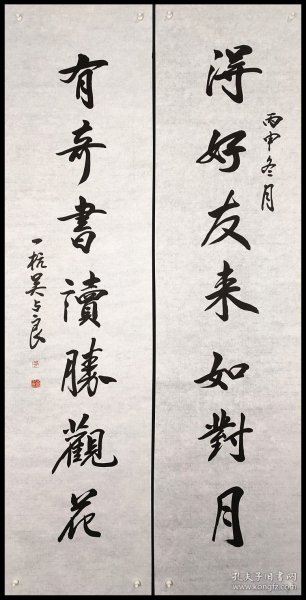 得好友来如對月
丙申冬月
有奇書讀勝觀花
一梡吴占良
孔夫子旧书网
www.kongfz.com